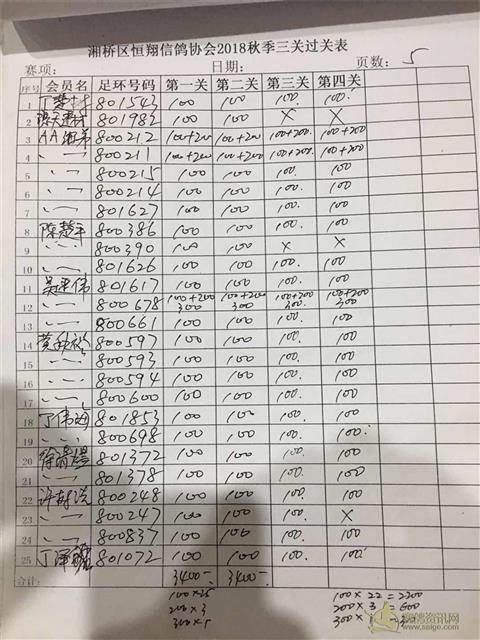 湘桥区恒翔信鸽协会2018秋季三关过关表
赛项: 日期: 页数: 5
序号 会员名 足环号码 第一关 第二关 第三关 第四关
1 801543 100 100 100. 100.
2 801983 100 100 X X
3 AA 800212 100+200 100+200 100+200. 100+200
4 〃 800211 100+200 100+200 100+200. 100+200
5 〃 800215 100 100 100. 100.
6 〃 800214 100 100 100. 100.
7 〃 801627 100 100 100. 100.
8 陈楚平 800386 100 100 100. 100.
9 〃 800390 100 100 X X
10 〃 801626 100 100 100. 100.
11 801617 100 100 100. 100.
12 〃 800678 100+200 300 100+200 300 100+200 300. 100+200 300
13 〃 800661 100 100 100. 100.
14 800597 100 100 100. 100.
15 〃 800593 100 100 100. 100.
16 〃 800594 100 100 100. 100.
17 〃 800600 100 100 100. 100.
18 丁伟鸿 801853 100 100 100. 100.
19 〃 800698 100 100 100. 100.
20 801372 100 100 100. 100.
21 〃 801378 100 100 100. 100.
22 800248 100 100 100. 100.
23 〃 800247 100 100 100. X
24 〃 800837 100 100 100. 100.
25 801072 100 100 100. 100.
合计: 3400- 3400-
100×25 100×22=2200
200×3 200×3=600
300×5 300×1=300
赛鸽资讯网
www.saige.com